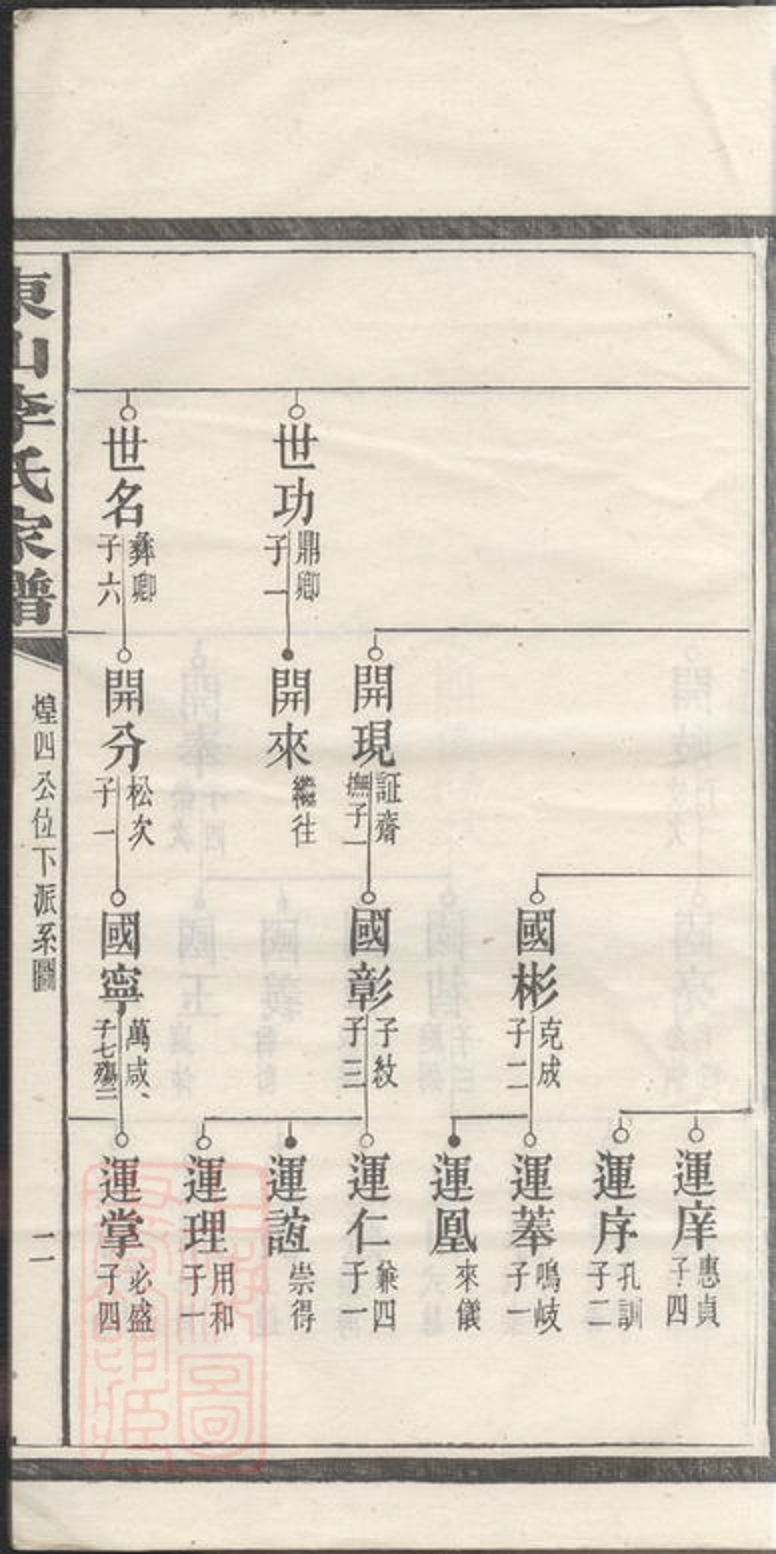 世功
鼎卿
子一
世名
彝卿
子六
開現
証齋
撫子一
開來
繼往
開分
松次
子一
國彬
克成
子二
國彰
子紋
子三
國寧
萬咸、
子七殤三
運庠
惠貞
子四
運序
孔訓
子二
運菶
鳴岐
子一
運凰
來儀
運仁
兼四
子一
運誼
崇得
運理
用和
子一
運掌
必盛
子四
東山李氏家譜
煌四公位下派系圖
二